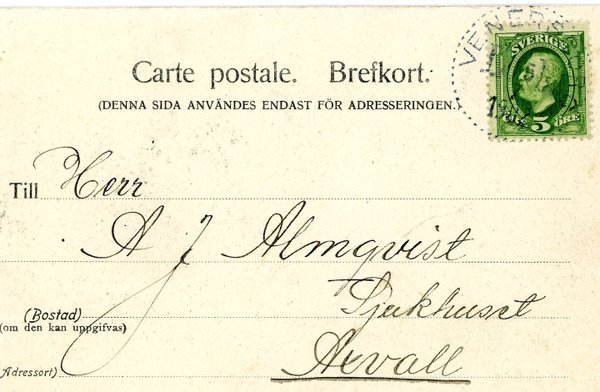 VENER
SVERIGE
5 ÖRE
Carte postale. Brefkort.
(DENNA SIDA ANVÄNDES ENDAST FÖR ADRESSERINGEN.)
Till Herr
A J Almqvist
(Bostad) Sjukhuset
(om den kan uppgifvas)
Adressort) Arvall